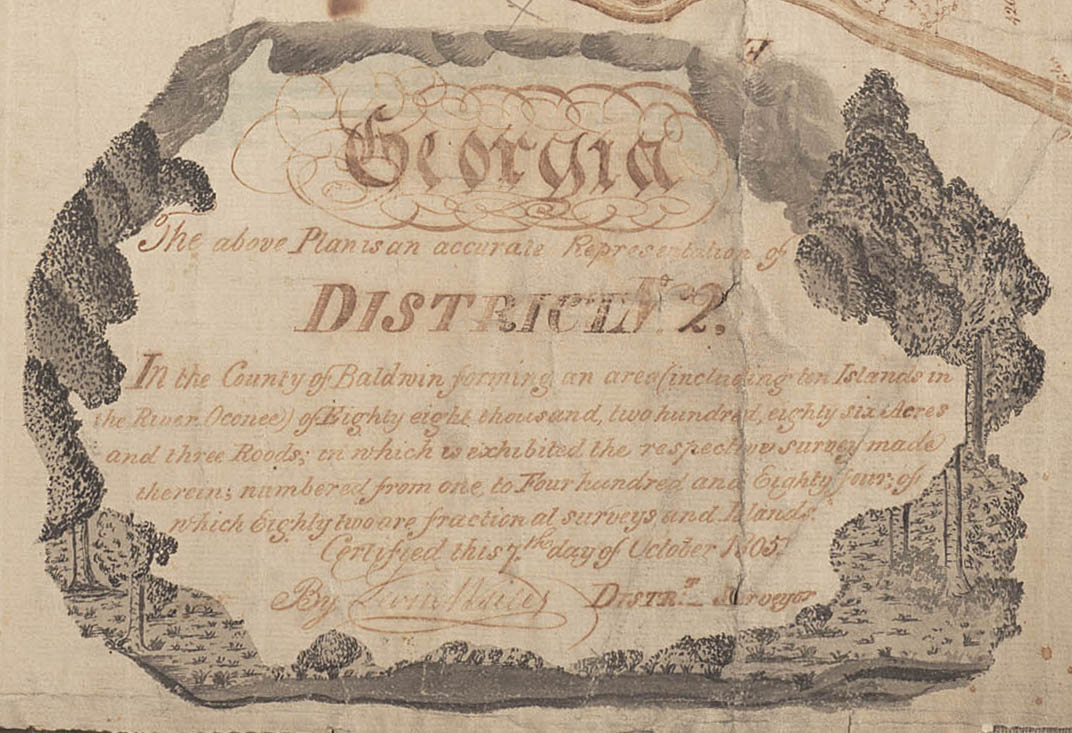 Georgia
The above Plan is an accurate Representation of
DISTRICT No. 2.
In the County of Baldwin forming an area (including ten Islands in
the River Oconee) of Eighty eight thousand, two hundred, eighty six Acres
and three Roods; in which is exhibited the respective survey made
therein; numbered from one, to Four hundred and Eighty four; of
which Eighty two are fractional surveys and Islands
Certified this 7th day of October 1805
By Levin Wailes Distr.t Surveyor